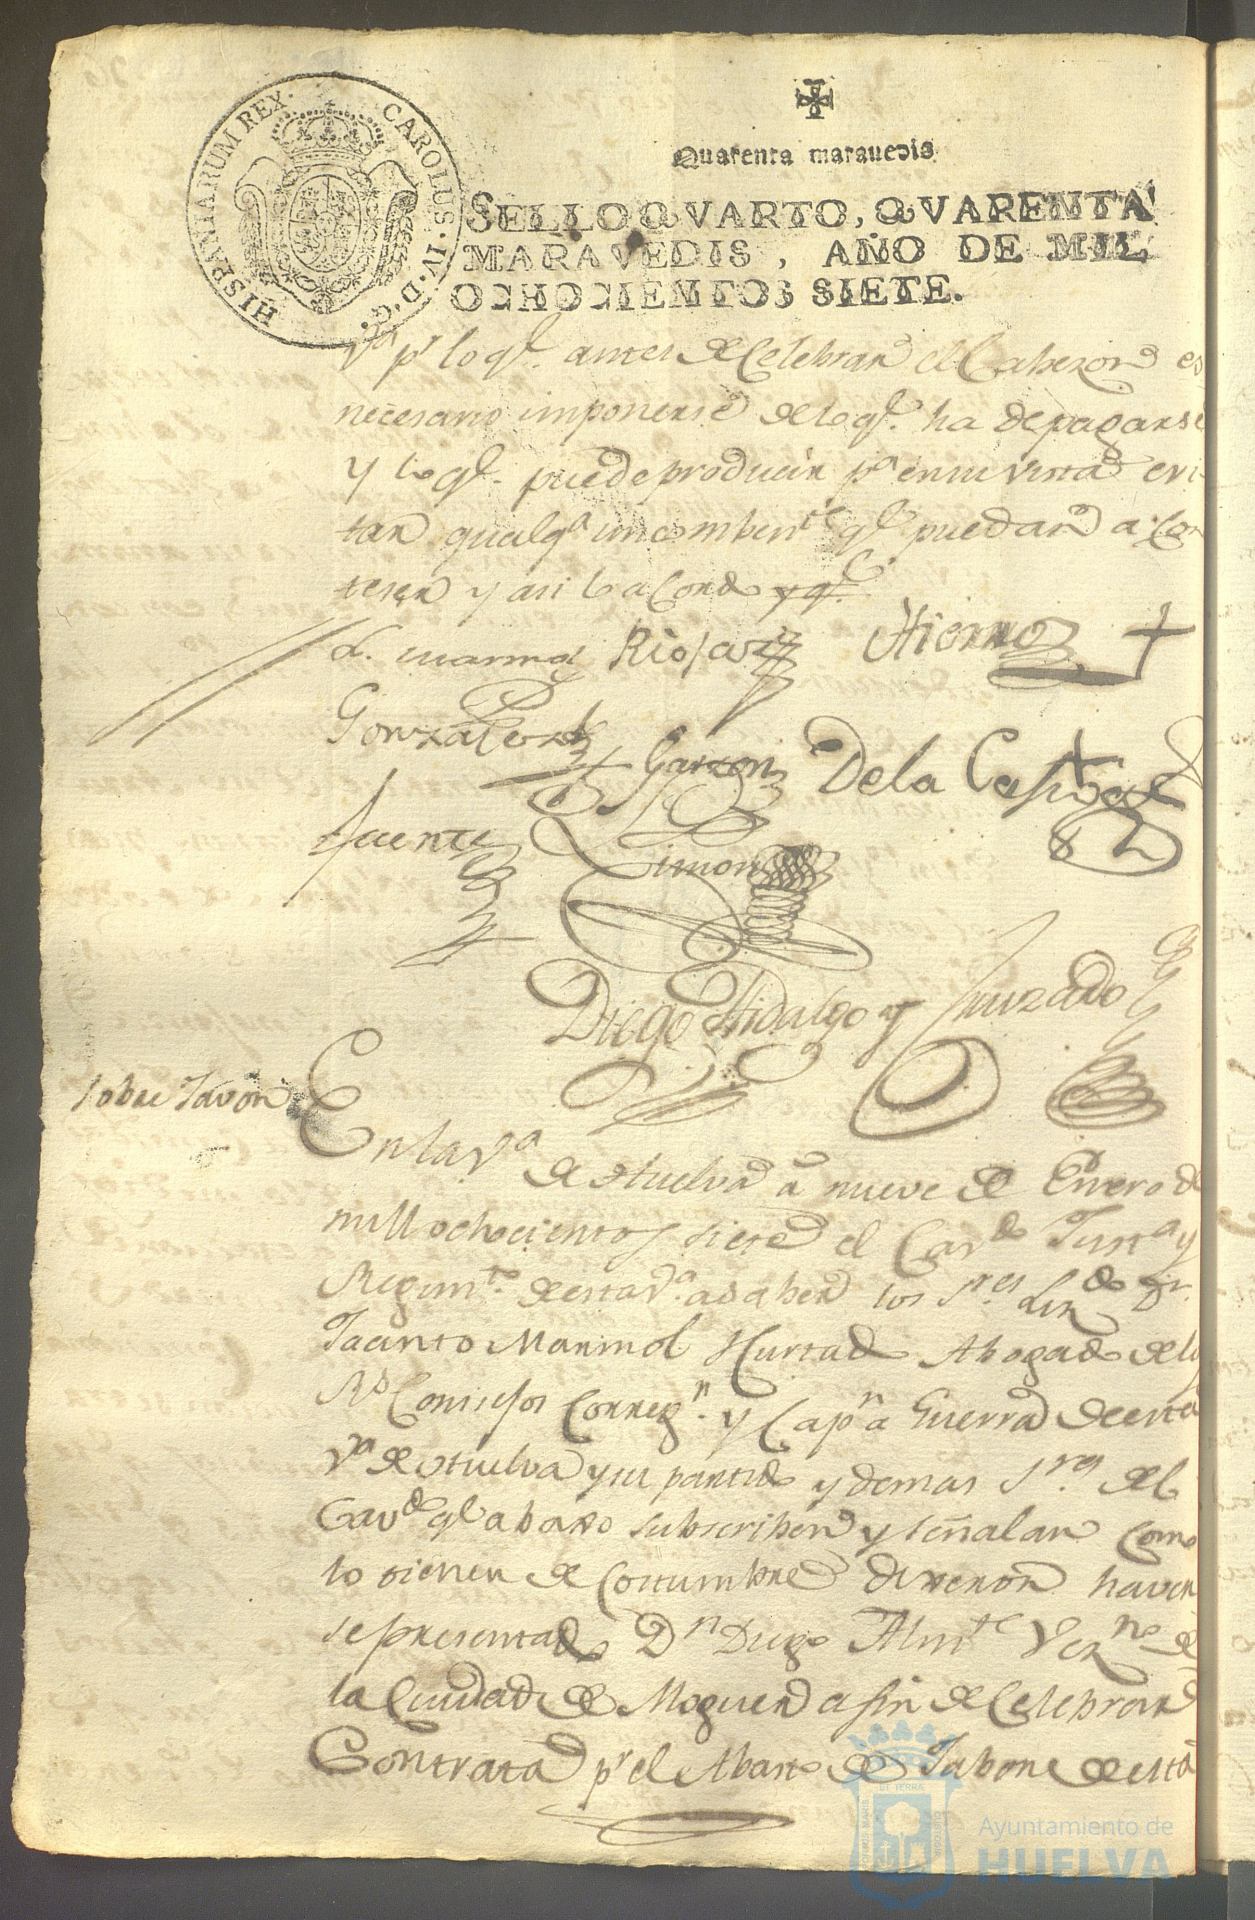 HISPANIARUM REX. CAROLUS. IV. D. G.
Quarenta maravedis
SELLO QVARTO, QVARENTA
MARAVEDIS, AÑO DE MIL
OCHOCIENTOS SIETE.
Vª pr lo qe. antes de Celebrar el Cabezon es
necesario imponerse de lo qe. ha de pagarse
y lo qe. puede producir pª en su vista evi-
tar qualqª incombente qe puedan a con
teser y asi lo acordo
Rioja Hierro
Gonzalez Garzon De la Corte
fuente Limon
Diego Hidalgo y Cruzado
sobre Javon
En la Vª de Huelva a nueve de Enero de
mill ochocientos siete el Cavdo Justª y
Regimto. de esta Vª. a saber los Sres Lizdo Dn.
Jacinto Marmol Hurtado Abogado de los
Rs Consejos Corregr. y Capn a Guerra de esta
Vª de Huelva y su partido y demas Sres del
Cavdo qe abaxo subscriben y señalan como
lo tienen de Costumbre dixeron haver
se presentado Dn Diego Almte Vezno de
la Ciudad de Moguer a fin de Celebrar
Contrata pr el Abasto de Jabon de esta
Ayuntamiento de
HUELVA